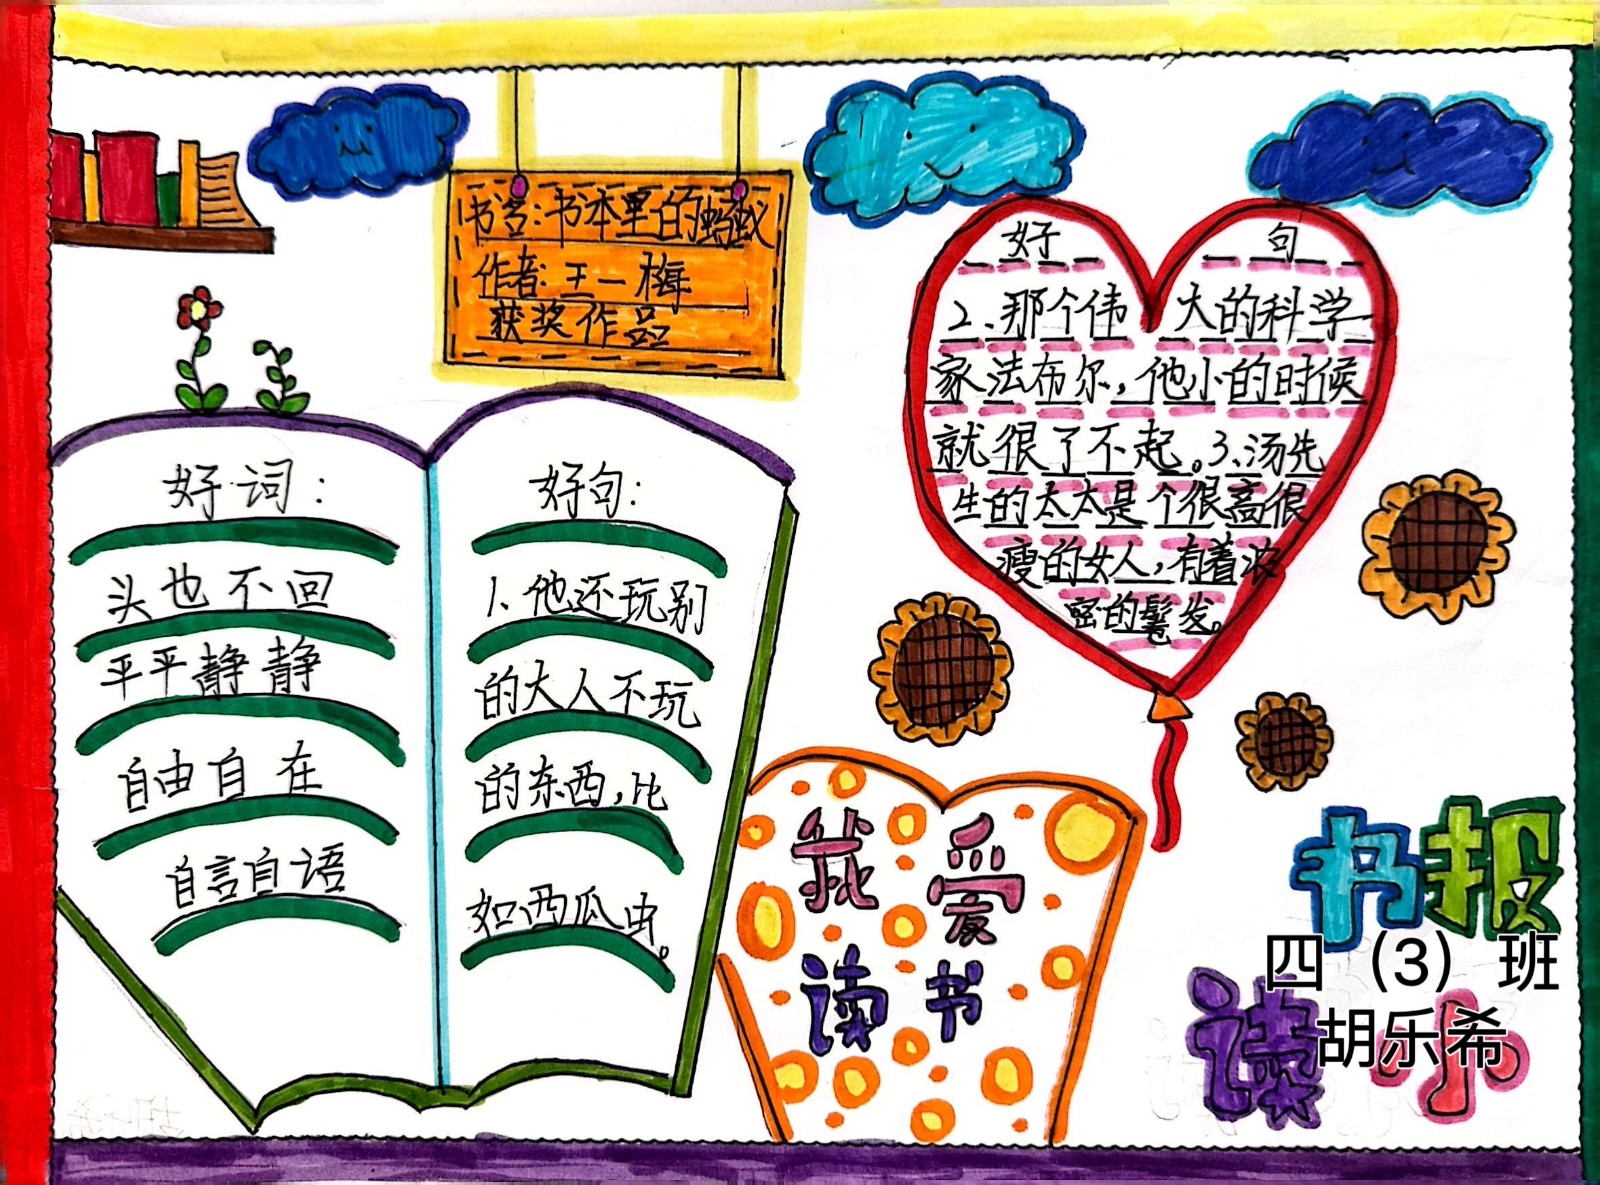 书名:书本里的蚂蚁
作者:王一梅
获奖作品
好词:
头也不回
平平静静
自由自在
自言自语
好句:
1、他还玩别
的大人不玩
的东西,比
如西瓜虫。
好 句
2、那个伟 大的科学
家法布尔,他小的时候
就很了不起。3、汤先
生的太太是个很高很
瘦的女人,有着浓
密的鬈发。
我爱
读书
书报
读小
四（3）班
胡乐希